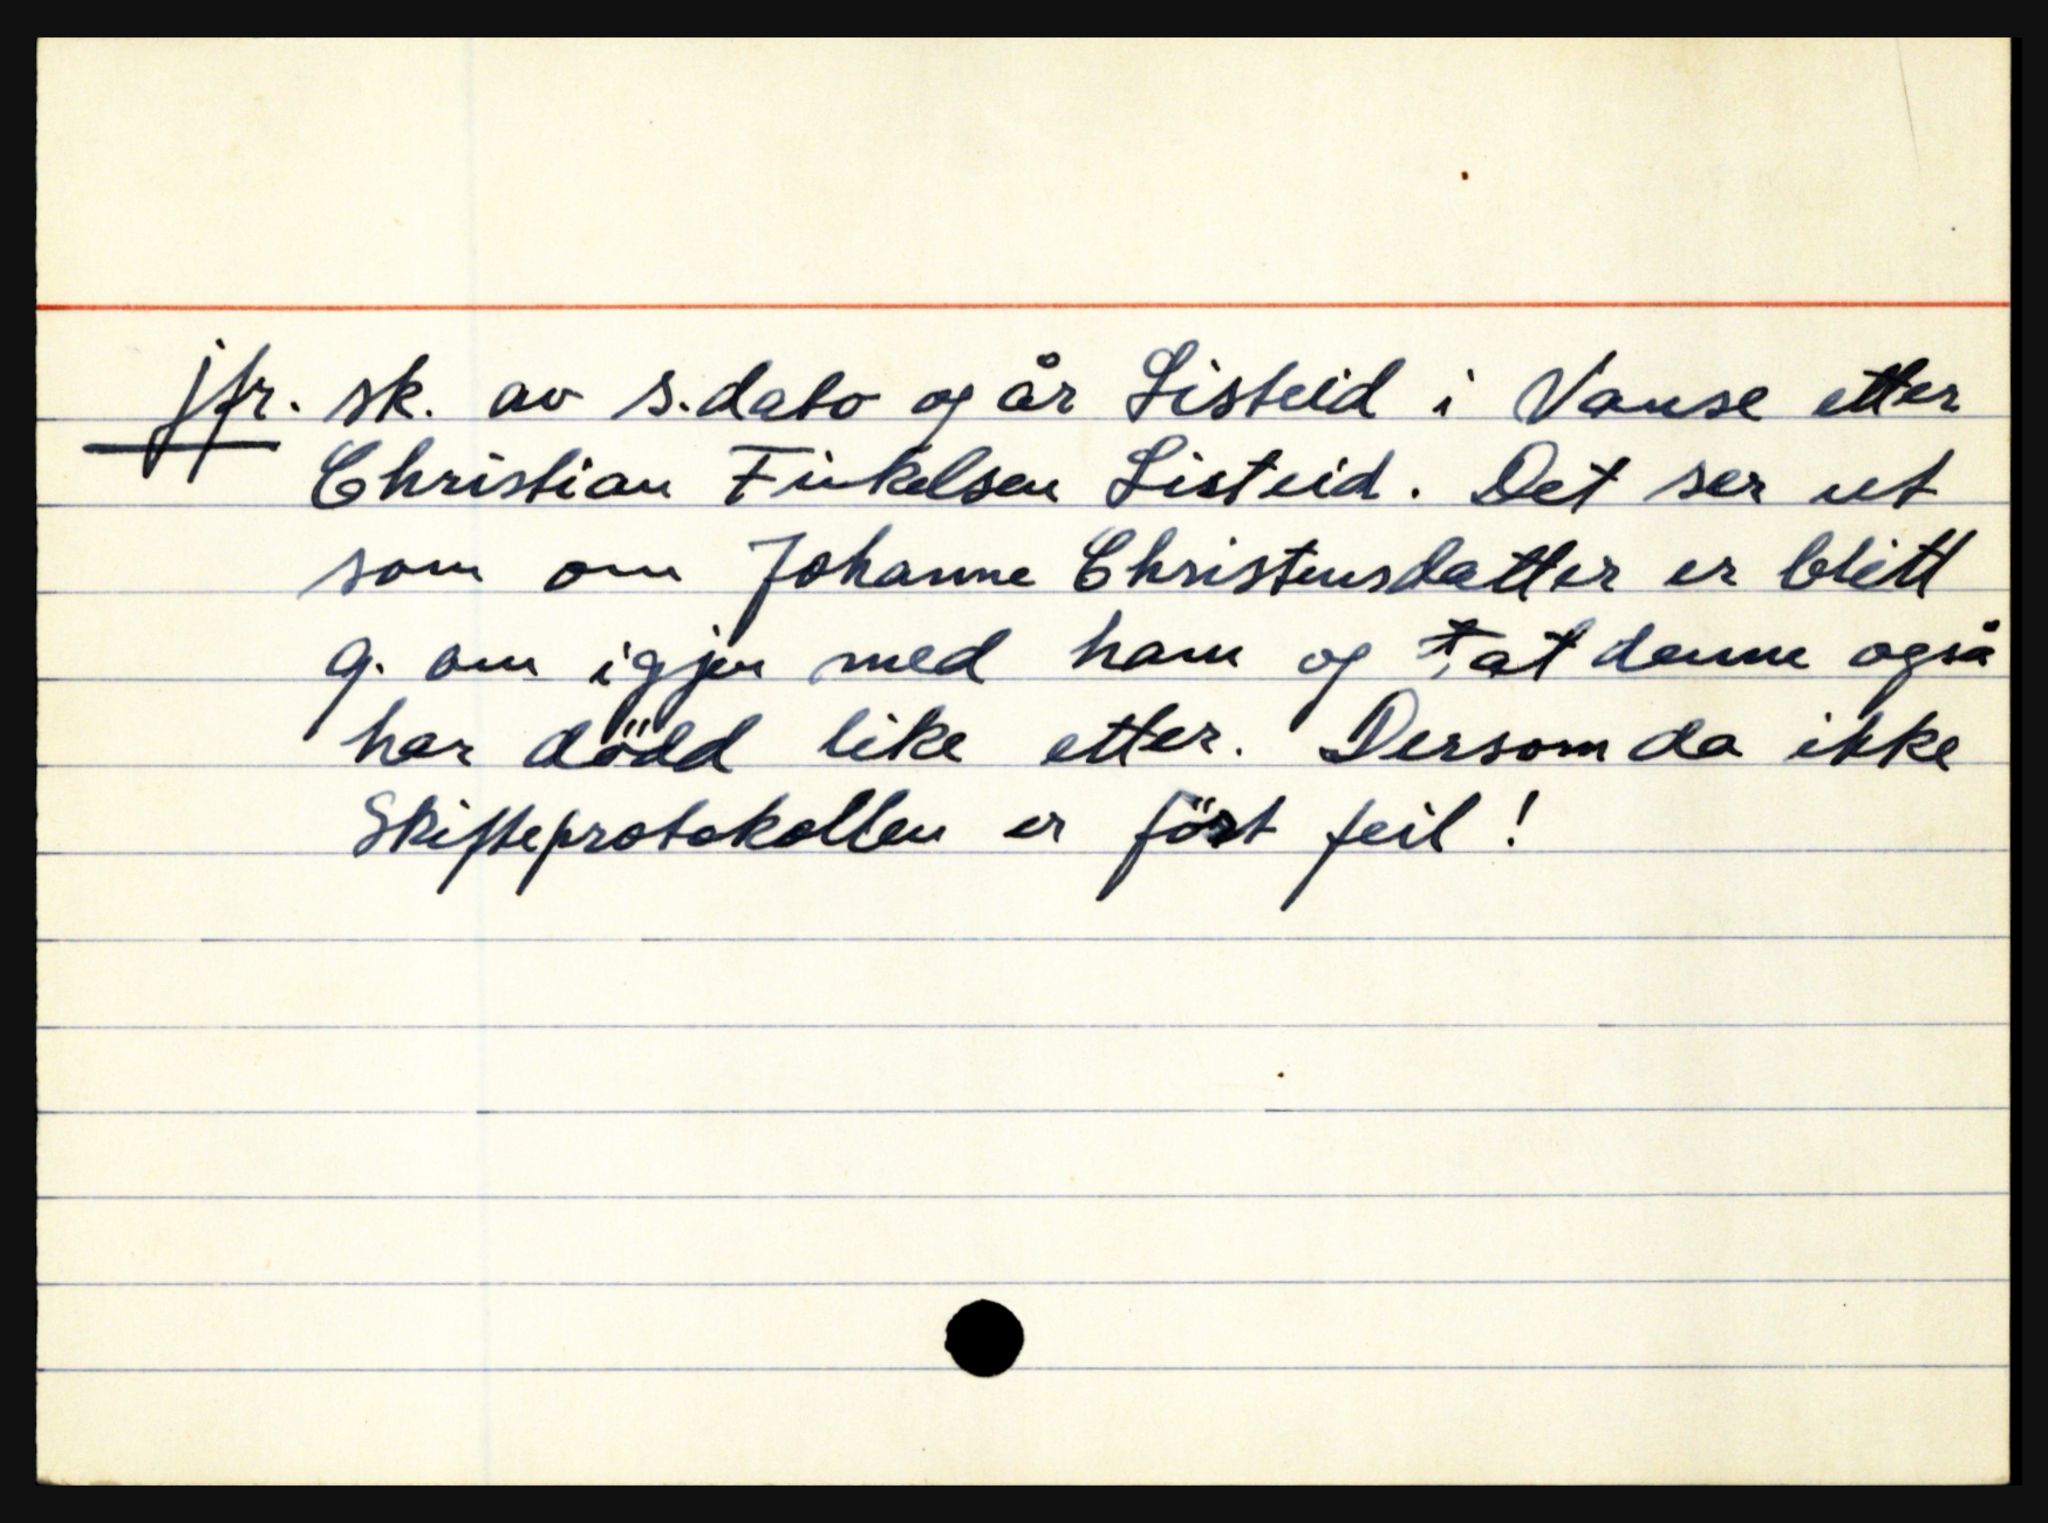 jfr. sk. av s.dato og år Listeid i Vanse etter
Christian Finkelsen Listeid. Det ser ut
som om Johanne Christensdatter er blitt
g. om igjen med ham og at denne også
har dödd like etter. Dersom da ikke
Skifteprotokollen er fört feil!